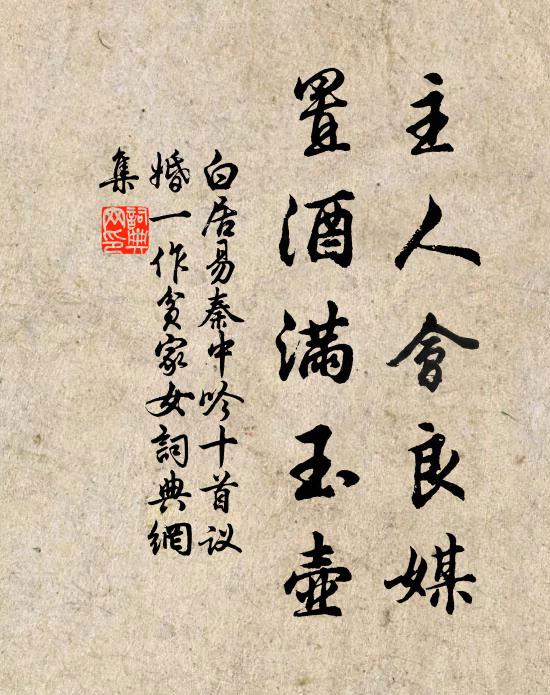 主人會良媒
置酒滿玉壺
白居易秦中吟十首议
婚一作贫家女詞典網
集
詞典
网印